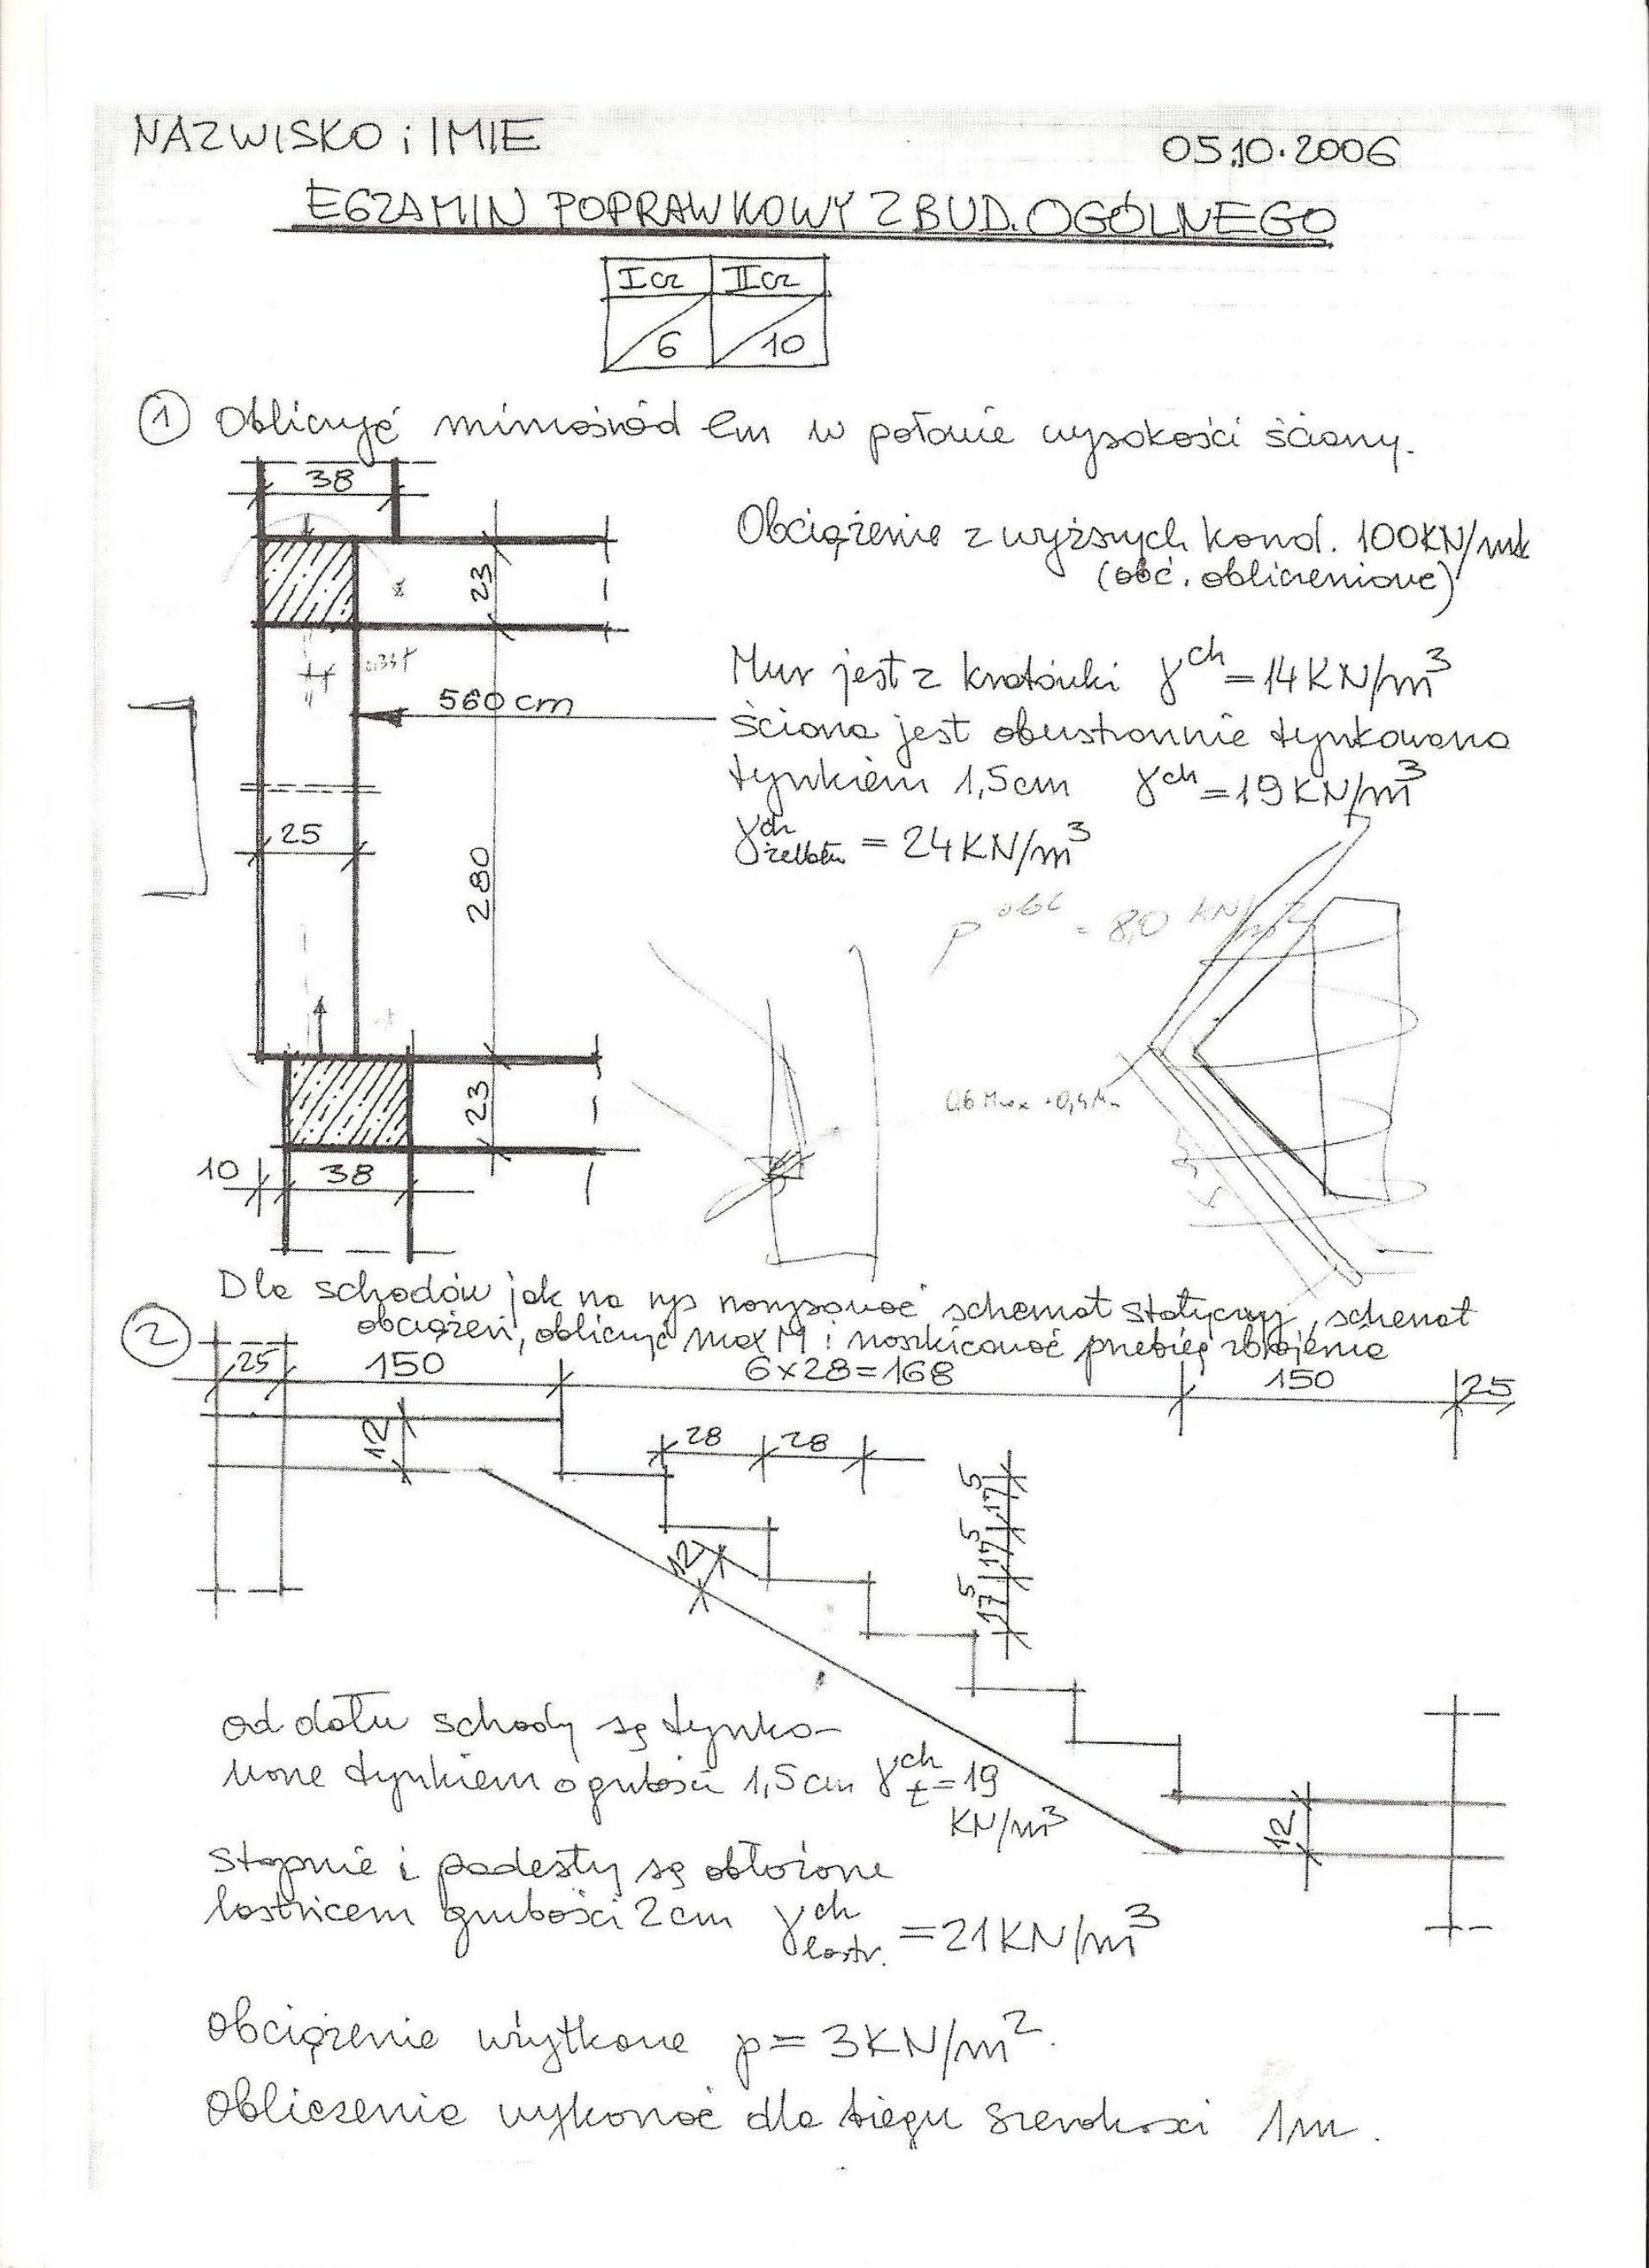 NAZWISKO i IMIE
05.10.2006
EGZAMIN POPRAWKOWY Z BUD. OGÓLNEGO
I cz II cz
6 10
1 Obliczyć mimośród em w połowie wysokości ściany.
38
Obciążenie z wyższych kond. 100KN/mb
(obć. obliczeniowe)
23
Mur jest z kratówki γ ch = 14KN/m3
560 cm
Ściana jest obustronnie tynkowana
tynkiem 1,5cm γ ch = 19KN/m3
25
γ ch żelbetu = 24KN/m3
280
p obl = 8,0 KN/m2
23
10 38
Dla schodów jak na rys narysować schemat statyczny, schemat
2 obciążeń, obliczyć max M i naszkicować przebieg zbrojenia
25 150 6x28=168 150 25
12
28 28
17 5 17 5 17 5
12
od dołu schody są tynko-
wane tynkiem o grubości 1,5cm γ ch t = 19
KN/m3
12
Stopnie i podesty są obłożone
lastricem grubości 2cm γ ch lastr. = 21KN/m3
Obciążenie użytkowe p = 3KN/m2.
Obliczenia wykonać dla biegu szerokosci 1m.